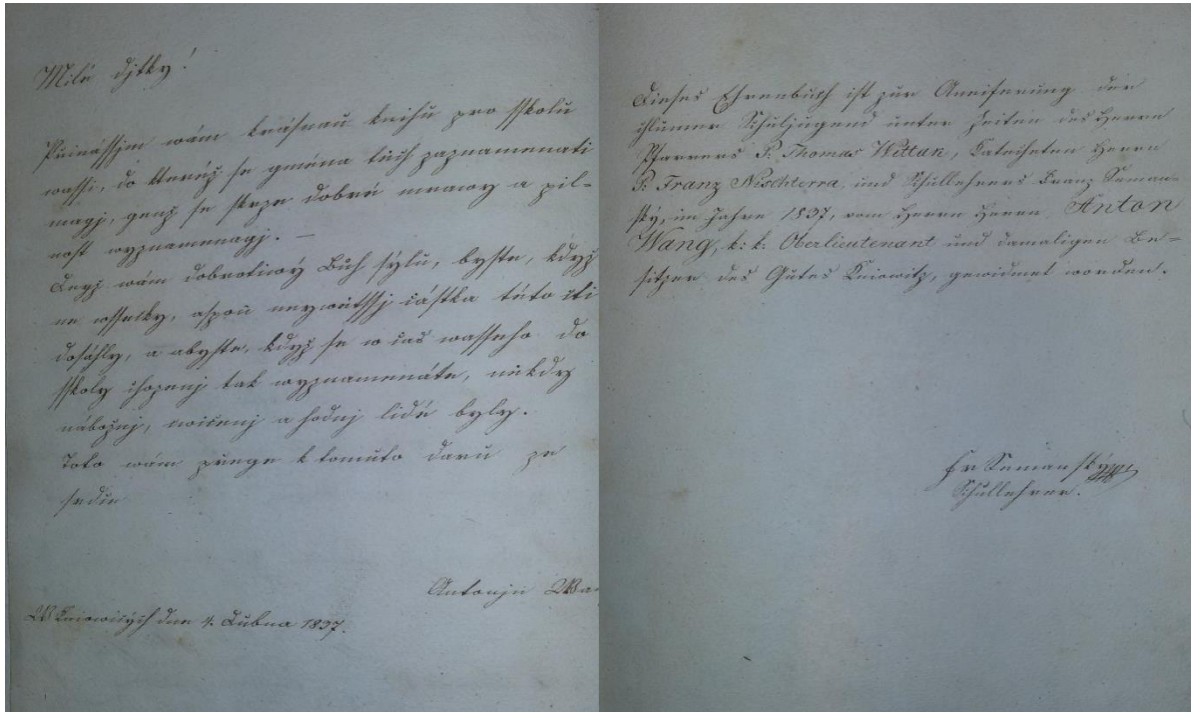 Milé djtky!
Přinássjm wám krásnau knihu pro sskolu
wassi, do kteréž se gména těch zaznamenati
magj, genž se skrze dobré mrawy a pil-
nost wyznamenagj. —
Deyž wám dobrotiwý Bůh sylu, byste, když
ne wssecky, aspoň neywětssj částka této cti
dosáhly, a abyste, když se w čas wasseho do
sskoly chozenj tak wyznamenáte, někdy
nábožnj, cwičenj a hodnj lidé byly.
Toto wám přege k tomuto daru ze
srdce
Antonjn Wa
W Kniowicých dne 4. Dubna 1837.
Dieses Ehrenbuch ist zur Aneiferung der
chlumer Schuljugend unter Zeiten des Herrn
Pfarrers P. Thomas Wittak, Katecheten Herrn
P. Franz Nischterra, und Schullehrers Franz Seman-
ský, im Jahre 1837, vom Herrn Herrn Anton
Wang, k. k. Oberlieutenant und damaligen Be-
sitzer des Gutes Kniowitz, gewidmet worden.
Fr Semanský
Schullehrer.